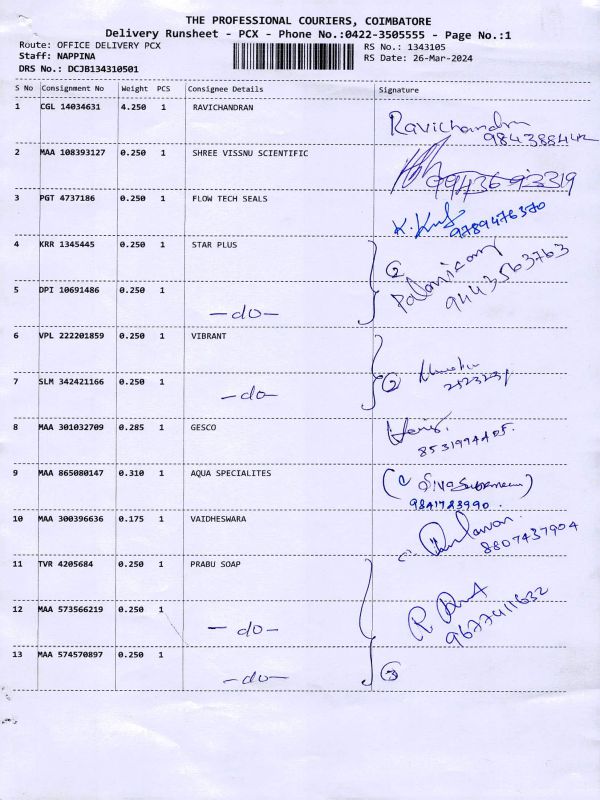 THE PROFESSIONAL COURIERS, COIMBATORE
Delivery Runsheet - PCX - Phone No.:0422-3505555 - Page No.:1
Route: OFFICE DELIVERY PCX RS No.: 1343105
Staff: NAPPINA RS Date: 26-Mar-2024
DRS No.: DCJB134310501
S No Consignment No Weight PCS Consignee Details Signature
1 CGL 14034631 4.250 1 RAVICHANDRAN Ravichandran
2 MAA 108393127 0.250 1 SHREE VISSNU SCIENTIFIC
3 PGT 4737186 0.250 1 FLOW TECH SEALS
9789476370
4 KRR 1345445 0.250 1 STAR PLUS 2
9443563763
5 DPI 10691486 0.250 1 -do-
6 VPL 222201859 0.250 1 VIBRANT
7 SLM 342421166 0.250 1 -do- 2
8 MAA 301032709 0.285 1 GESCO
9 MAA 865080147 0.310 1 AQUA SPECIALITES
9841783990
10 MAA 300396636 0.175 1 VAIDHESWARA
8807437904
11 TVR 4205684 0.250 1 PRABU SOAP
12 MAA 573566219 0.250 1 -do-
9677411632
13 MAA 574570897 0.250 1 -do- 3